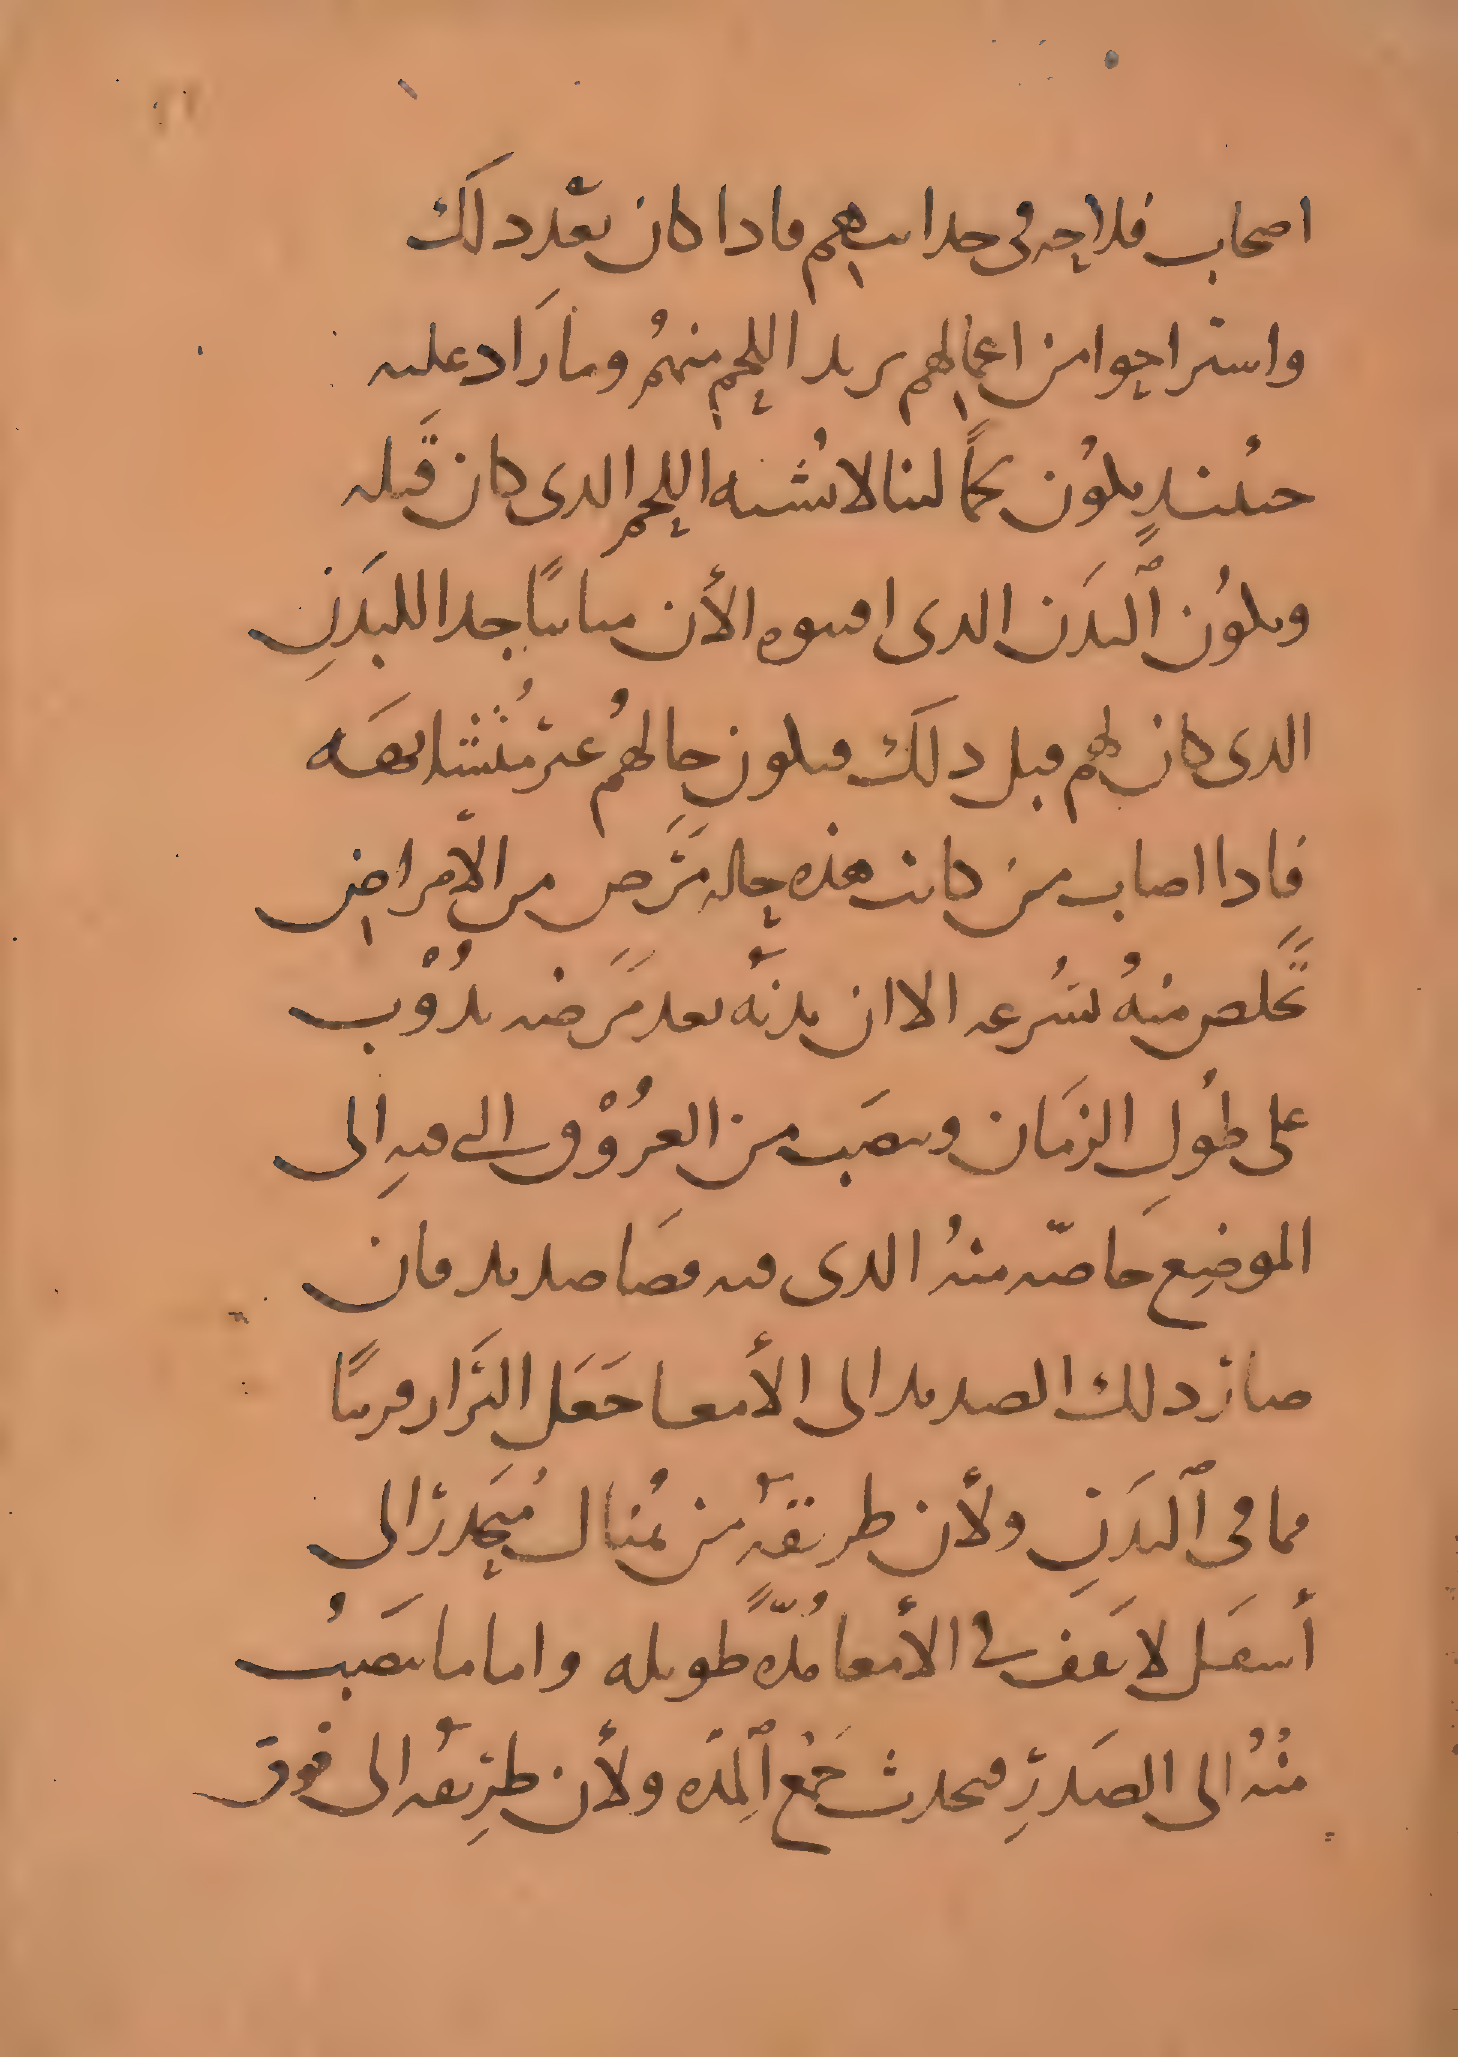 اصحاب فلاحه فى حداثتهم فاذا كان بعد ذلك
واستراحوا من اعمالهم تزيد اللحم منهم وما زاد عليه
حينئذ يكون لحمًا لينا لا يُشبه اللحم الذى كان قَبله
ويكوُن ٱلبدَن الذى اقتنوه الأن مباينًا جدا للبدَنِ
الذى كان لهم قبل ذلَك فيكون حالهُم غير مُتشابهَه
فاذا اصاب من كانت هذه حاله مَرَض من الأمراض
تخلص منهُ بسُرعه الا ان بدنَه بعد مَرَضه يذُوْب
على طُولِ الزمَان وينصَب من العرُوْق التى فيهِ الى
الموضِع خاصّه منهُ الذى فيه فضَا صديد فان
صار ذلك الصديد الى الأمعا جَعَل البَراز قريبًا
مما فى ٱلبدَنِ ولأن طريقهٌ من هُناك مُنحَدر الى
أسفَل لا يقَف فى الأمعا مُدّهً طويله واما ما ينصَبُ
منْهُ الى الصَدرِ فيحدث جَمْع ٱلمِدَه ولأن طرِيقه الى فوق